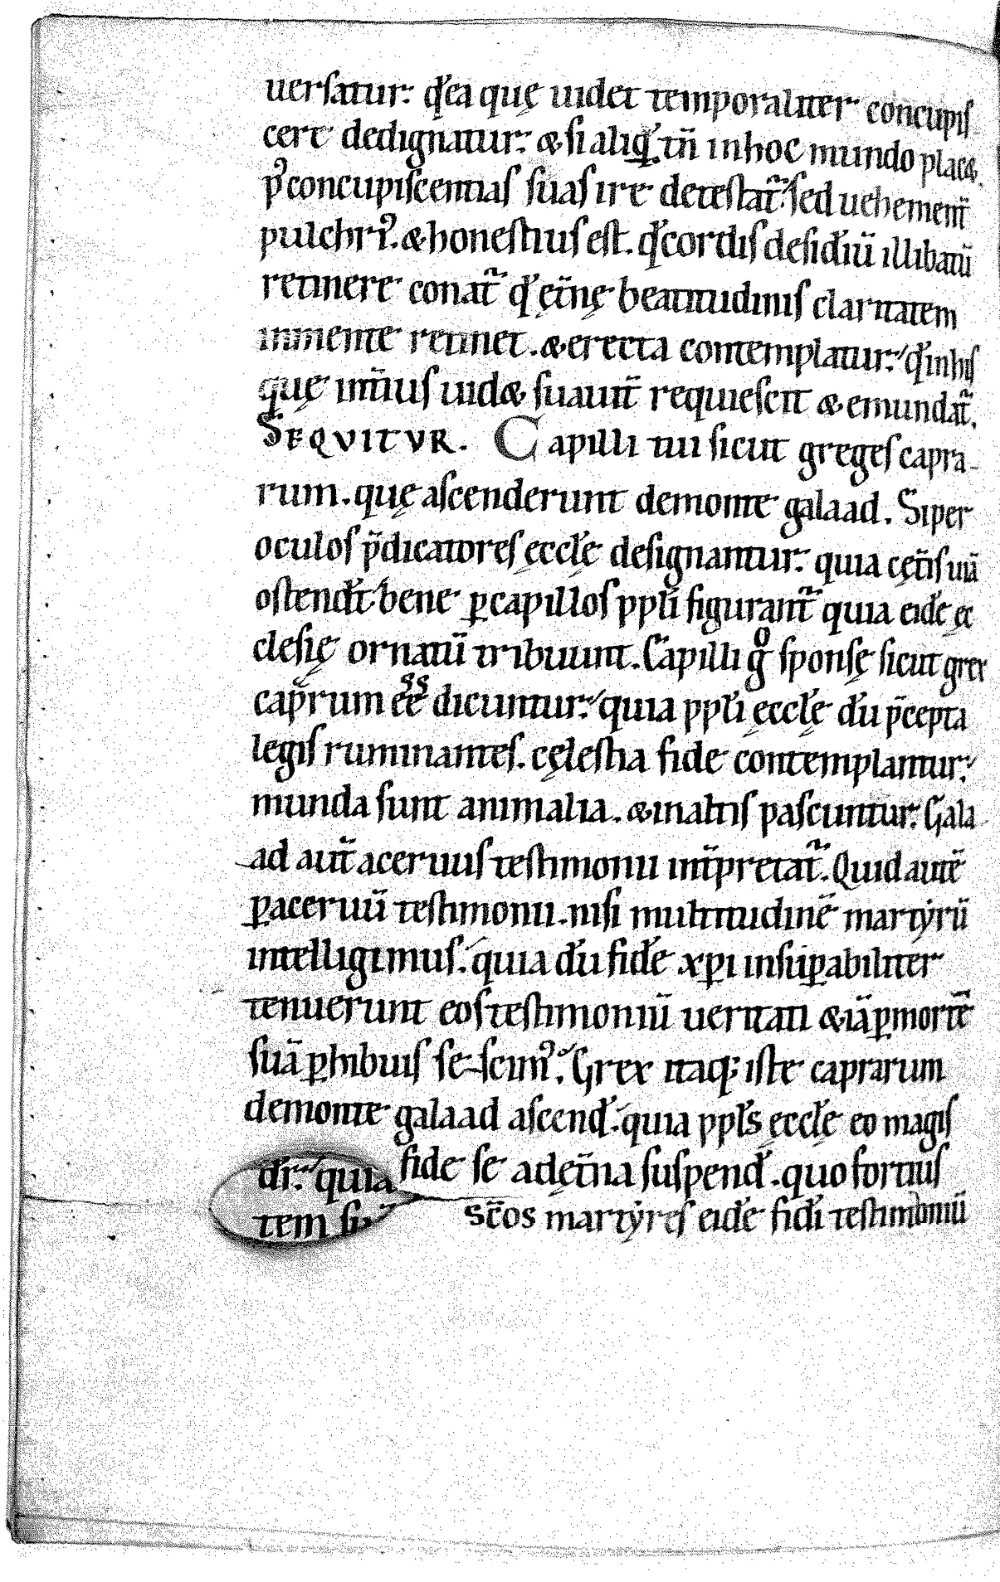 uersatur. qđ ea quę uidet temporaliter concupis
cere dedignatur. & si aliq̄ tn̄ in hoc mundo plac&.
p̄ concupiscentias suas ire detestat̃. sed uehement̃
pulchri᾽. & honestius est. qđ cordis desidiū illibatū
retinere conat̃ qđ ęt̄nę beatitudinis claritatem
in mente retinet. & erecta contemplatur. qđ in his
quę int̄ius uid& suauit̃ requiescit & emundat̃.
SEQVITVR. Capilli tui sicut greges capra-
rum. quę ascenderunt de monte galaad. Si per
oculos p̄dicatores ęccłę designantur. quia cęt̄is uiā
ostendt̄. bene ꝑ capillos ppłi figurant̃ quia eidē ęc
clesię ornatū tribuunt. Capilli gͦ sponsę sicut grex
cap̄rum ęē dicuntur. quia ppłi ęccłę dū p̄cepta
legis ruminantes. cęlestia fide contemplantur.
munda sunt animalia. & in altis pascuntur. Gala
ad aut̃ aceruus testimonii int̄pretat̃. Quid autē
ꝑ aceruū testimonii. nisi multitudinē martyrū
intelligimus. quia dū fidē xp̄i insuꝑabiliter
tenuerunt eos testimoniū ueritati & iā ꝑ mortē
suā ꝑhibuisse scim᾽. Grex itaq; iste caprarum
de monte galaad ascend̄. quia ppłs ęccłę eo magis
fide se ad ęt̄na suspend̄. quo fortius
dr̄. quia
tem
sc̄os martyres eidē fidi testimoniū